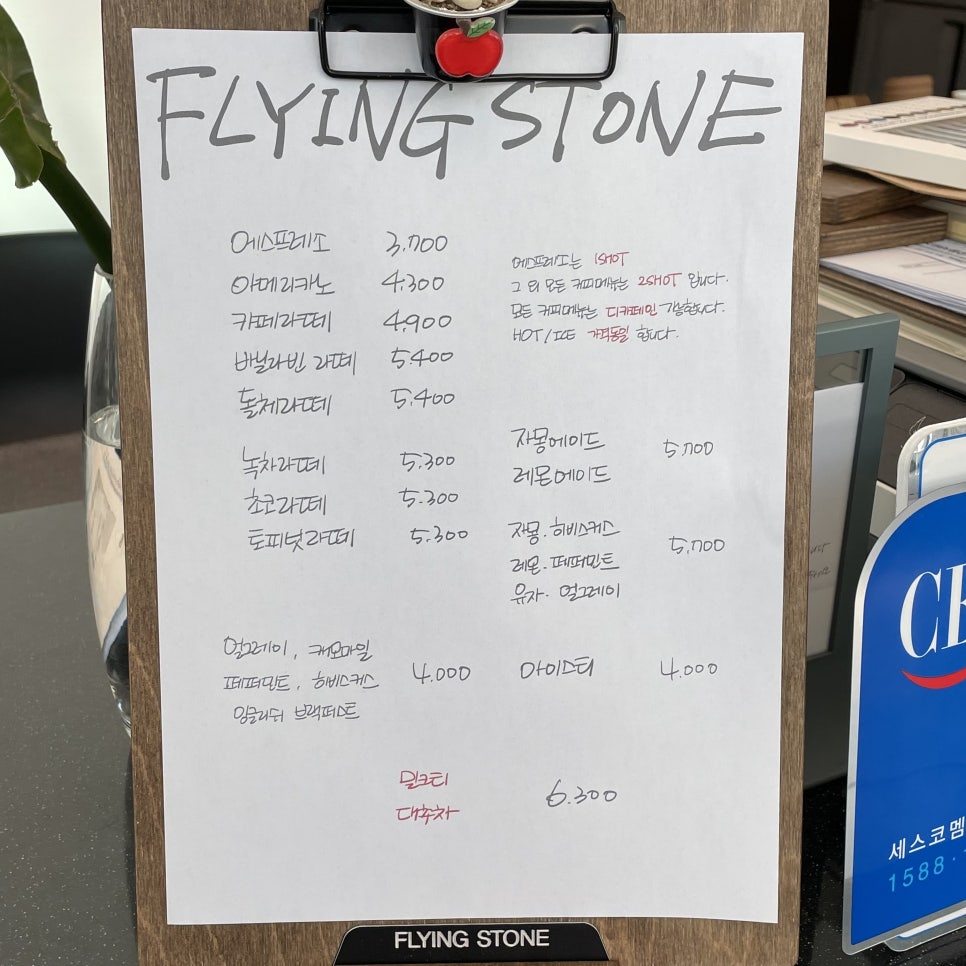 FLYING STONE
에스프레소 3,700
아메리카노 4,300
카페라떼 4,900
바닐라빈 라떼 5,400
돌체라떼 5,400
녹차라떼 5,300
초코라떼 5,300
토피넛라떼 5,300
얼그레이, 캐모마일
페퍼민트, 히비스커스 4,000
잉글리쉬 브랙퍼스트
에스프레소는 1SHOT
그 외 모든 커피메뉴는 2SHOT 입니다.
모든 커피메뉴는 디카페인 가능합니다.
HOT/ICE 가격동일 합니다.
자몽에이드 5,700
레몬에이드
자몽·히비스커스
레몬·페퍼민트 5,700
유자·얼그레이
아이스티 4,000
밀크티 6,300
대추차
FLYING STONE
CE
세스코멤
1588